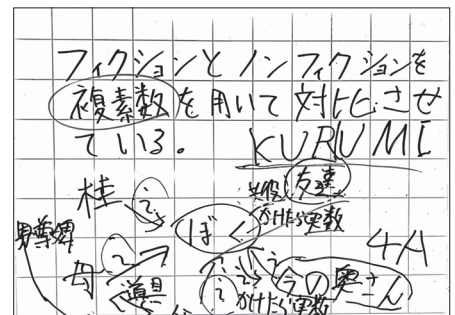 フィクションとノンフィクションを
複素数を用いて対比させ
ている。 KURUMI
桂 i 友達
かけたら実数
ぼく
4A
母 i i 今の奥さん
道具 i かけたら実数